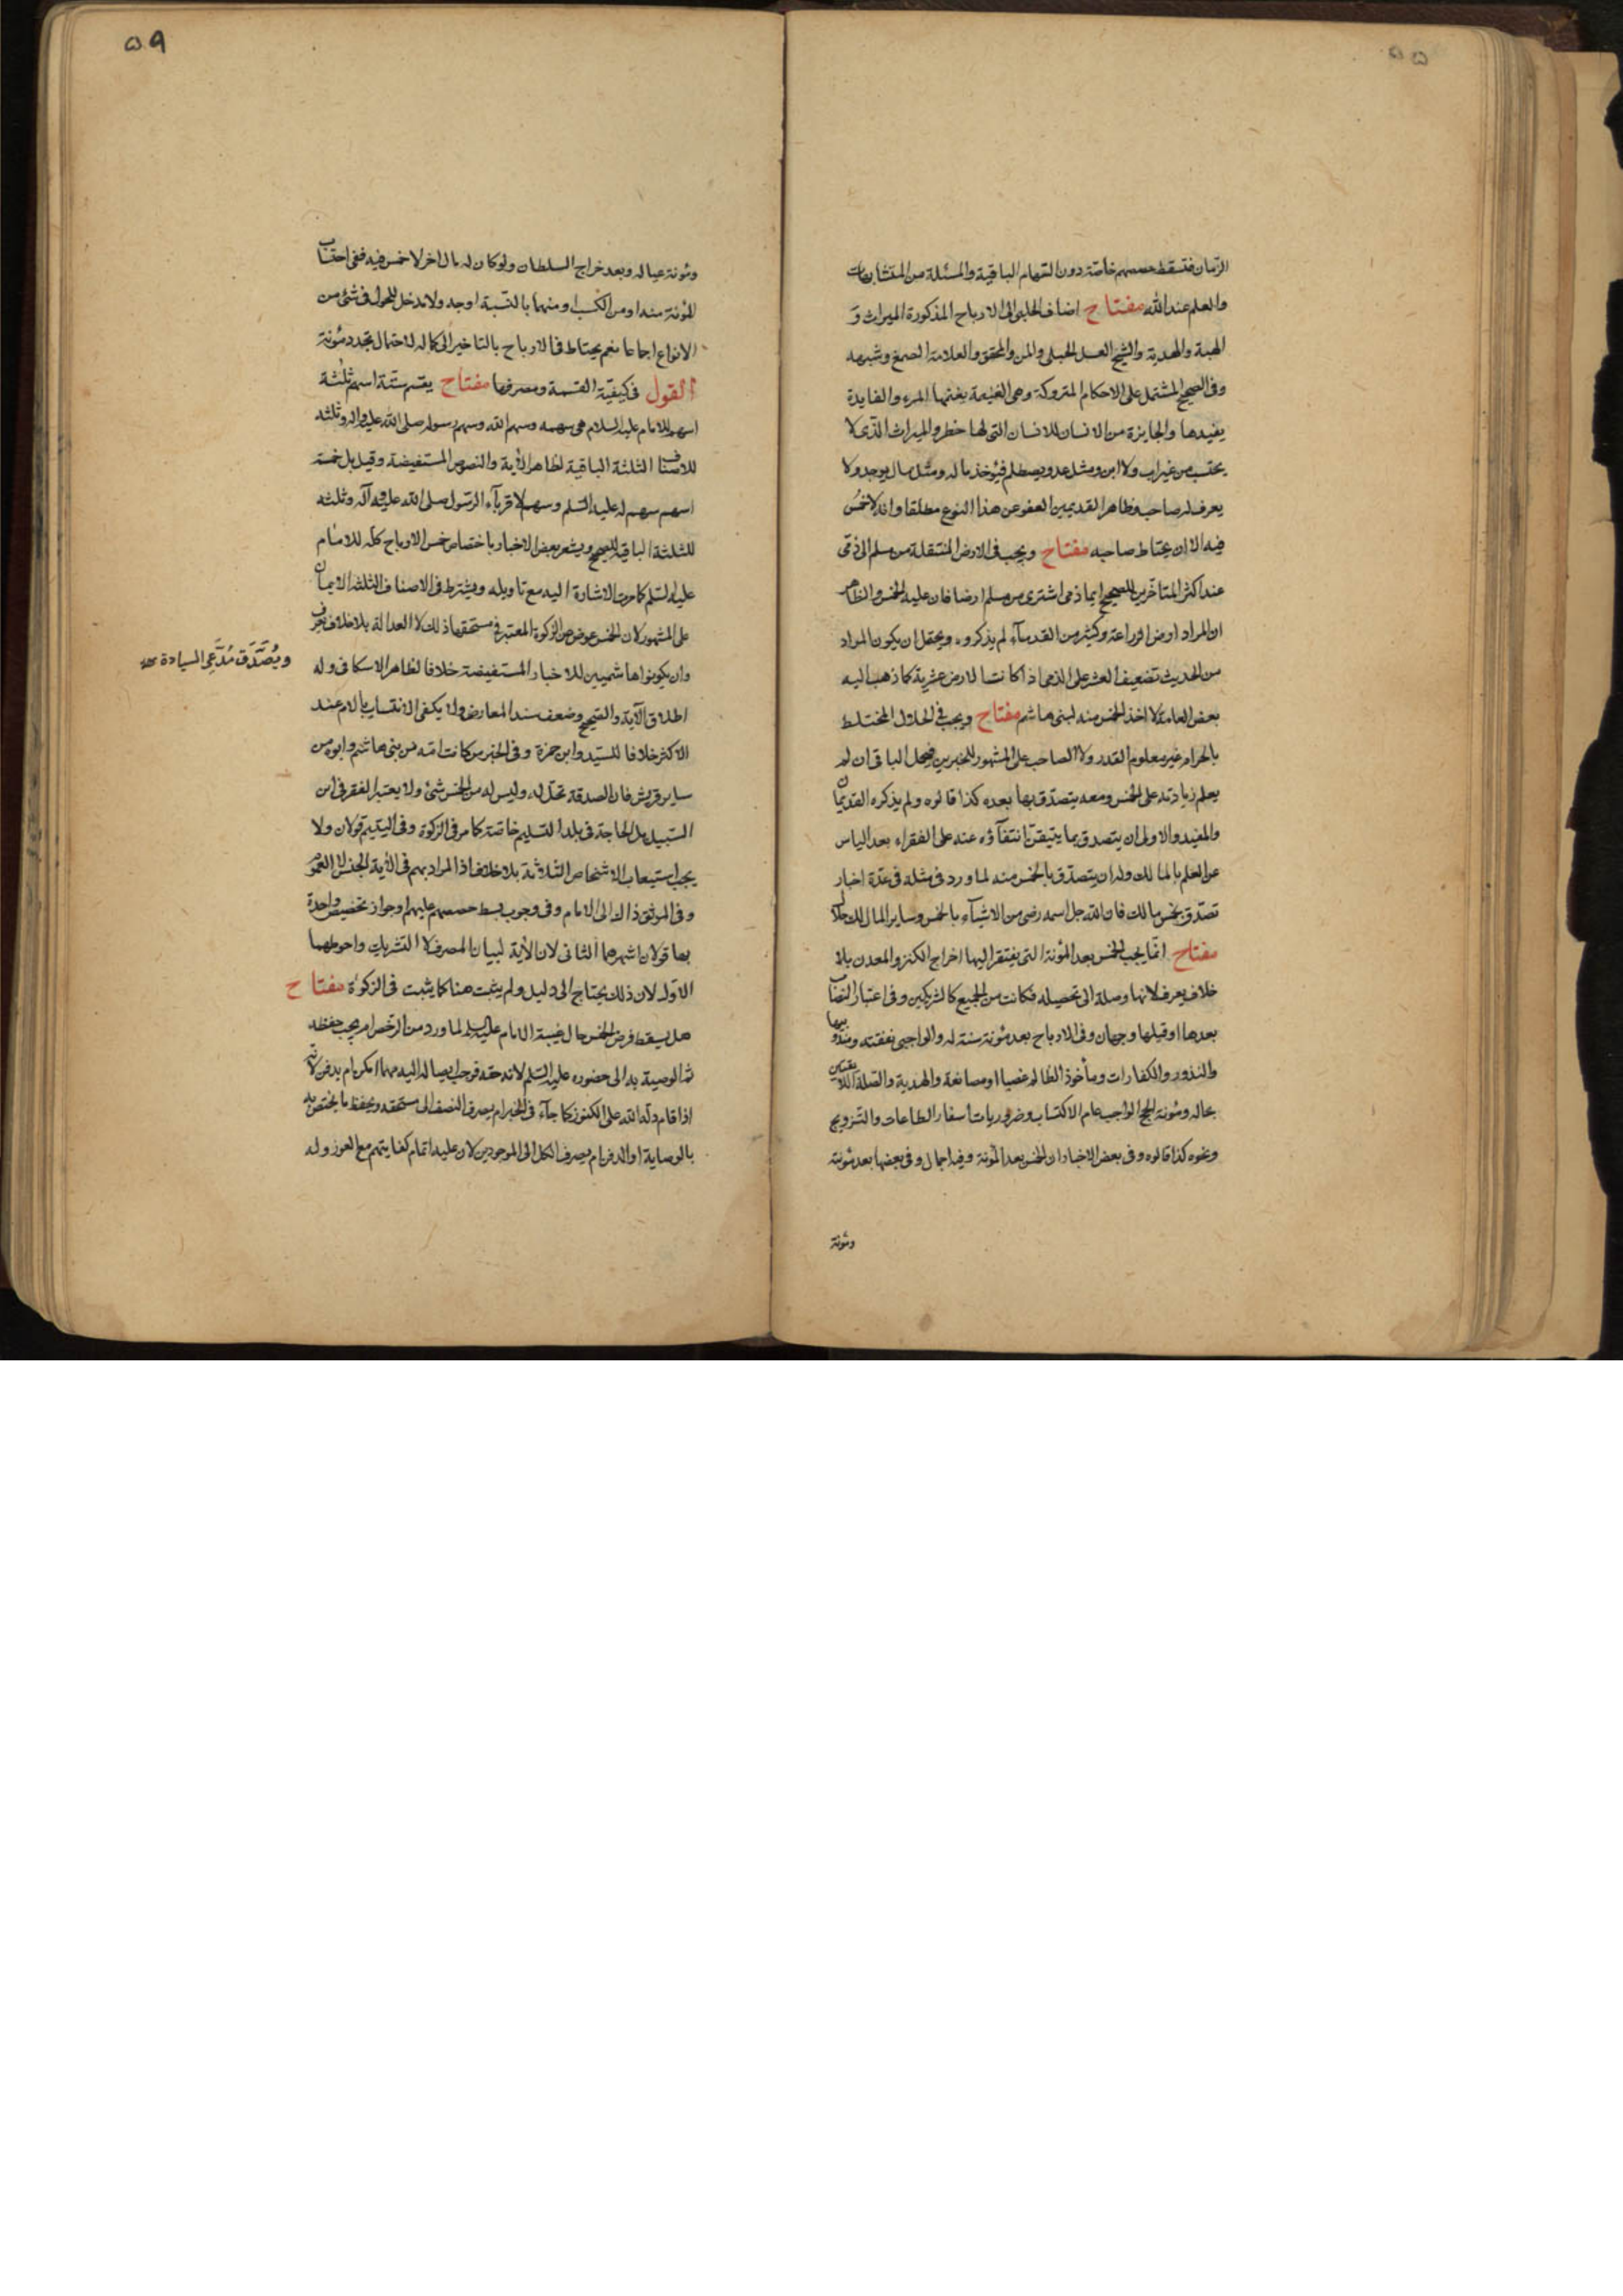 ۵۵
الزمان فتسقط حصصهم خاصّة دون السّهام الباقية والمسئلة من المتشابهات
والعلم عند الله مفتاح اضاف الحلبي الى الارباح المذكورة الميراث و
الهبة والهدية والشيخ العسل الجبلي والمن والمحقق والعلامة الصمغ وشبهه
وفي الصحيح المشتمل على الاحكام المتروكة وهي الغنيمة يغنمها المرء والفايدة
يفيدها والجايزة من الانسان للانسان التي لها خطر والميراث الذي لا
يحتسب من غير اب ولا ابن ومثل عدو يصطلم فيؤخذ ماله ومثل مال يوجد ولا
يعرف له صاحب وظاهر القديمين العفو عن هذا النوع مطلقا وانه لا خمس
فيه الا ان يحتاط صاحبه مفتاح ويجب في الارض المنتقلة من مسلم الى ذمّي
عند اكثر المتاخّرين للصحيح ايما ذمي اشترى من مسلم ارضا فان عليه الخمس والظاهر
ان المراد ارض الزراعة وكثير من القدماء لم يذكروه ويحتمل ان يكون المراد
من الحديث تضعيف العشر على الذمي اذا كانت الارض عشرية كما ذهب اليه
بعض العامة لا اخذ الخمس منه لبني هاشم مفتاح ويجب في الحلال المختلط
بالحرام غير معلوم القدر ولا الصاحب على المشهور للخبرين فيحل الباقي ان لم
يعلم زيادته على الخمس ومعه يتصدّق بها بعده كذا قالوه ولم يذكره القديمان
والمفيد والاولى ان يتصدق بما يتيقن انتفاؤه عنه على الفقراء بعد الياس
عن العلم بالمالك وله ان يتصدّق بالخمس منه لما ورد في مثله في عدّة اخبار
تصدّق بخمس مالك فان الله جل اسمه رضي من الاشياء بالخمس وساير المال لك حلال
مفتاح انّما يجب الخمس بعد المؤنة التي يفتقر اليها اخراج الكنز والمعدن بلا
خلاف يعرف لانها وصلة الى تحصيله فكانت من الجميع كالشريكين وفي اعتبار النصاب
بعدها او قبلها وجهان وفي الارباح بعد مؤنة سنة له ولواجبي نفقته ومندوبيها
والنذور والكفارات ومأخوذ الظالم غصبا او مصانعة والهدية والصلة اللايقتين
بحاله ومؤنة الحج الواجب عام الاكتساب وضروريات اسفار الطاعات والتزويج
ونحوه كذا قالوه وفي بعض الاخبار ان الخمس بعد المؤنة وفيه اجمال وفي بعضها بعد مؤنته
ومؤنة
۵۹
ومؤنة عياله وبعد خراج السلطان ولو كان له مال اخر لا خمس فيه ففي احتساب
المؤنة منه او من الكسب او منهما بالنسبة اوجه ولا مدخل للحول في شئ من
الانواع اجماعا نعم يحتاط في الارباح بالتاخير الى كماله لاحتمال تجدد مؤنة
القول في كيفيّة القسمة ومصرفها مفتاح يقسم ستة اسهم ثلثة
اسهم للامام عليه السلام هي سهمه وسهم الله وسهم رسوله صلى الله عليه واله وثلثة
للاصناف الثلثة الباقية لظاهر الآية والنصوص المستفيضة وقيل بل خمسة
اسهم سهم له عليه السّلم وسهم لاقرباء الرّسول صلى الله عليه وآله وثلثة
للثلثة الباقية للصحيح ويشعر بعض الاخبار باختصاص خمس الارباح كله للامام
عليه السّلم كما مرت الاشارة اليه مع تاويله ويشترط في الاصناف الثلثة الايمان
على المشهور لان الخمس عوض عن الزكوة المعتبر في مستحقها ذلك لا العدالة بلا خلاف يعرف
وان يكونوا هاشميين للاخبار المستفيضة خلافا لظاهر الاسكافي وله
ويُصَدَّق مُدَّعِي السيادة صح
اطلاق الآية والصحيح وضعف سند المعارض ولا يكفي الانتساب بالام عند
الاكثر خلافا للسّيد وابن حمزة وفي الخبر من كانت امّه من بني هاشم وابوه من
ساير قريش فان الصدقة تحل له وليس له من الخمس شئ ولا يعتبر الفقر في ابن
السّبيل بل الحاجة في بلد التسليم خاصّة كما مر في الزكوة وفي اليتيم قولان ولا
يجب استيعاب الاشخاص الثلاثة بلا خلاف اذ المراد بهم في الآية الجنس لا العموم
وفي الموثق ذاك الى الامام وفي وجوب بسط حصصهم عليهم او جواز تخصيص واحدة
بها قولان اشهرهما الثاني لان الآية لبيان المصرف لا التشريك واحوطهما
الاوّل لان ذلك يحتاج الى دليل ولم يثبت هنا كما يثبت في الزكوة مفتاح
هل يسقط فرض الخمس حال غيبة الامام عليه السلم لما ورد من الرخص ام يجب حفظه
ثم الوصية به الى حضوره عليه السّلم لانه حقه فوجب ايصاله اليه مهما امكن ام يدفن لانه
اذا قام دلّه الله على الكنوز كما جاء في الخبر ام يصرف النصف الى مستحقه ويحفظ ما يختص به
بالوصاية او الدفن ام يصرف الكل الى الموجودين لان عليه اتمام كفايتهم مع العوز وله